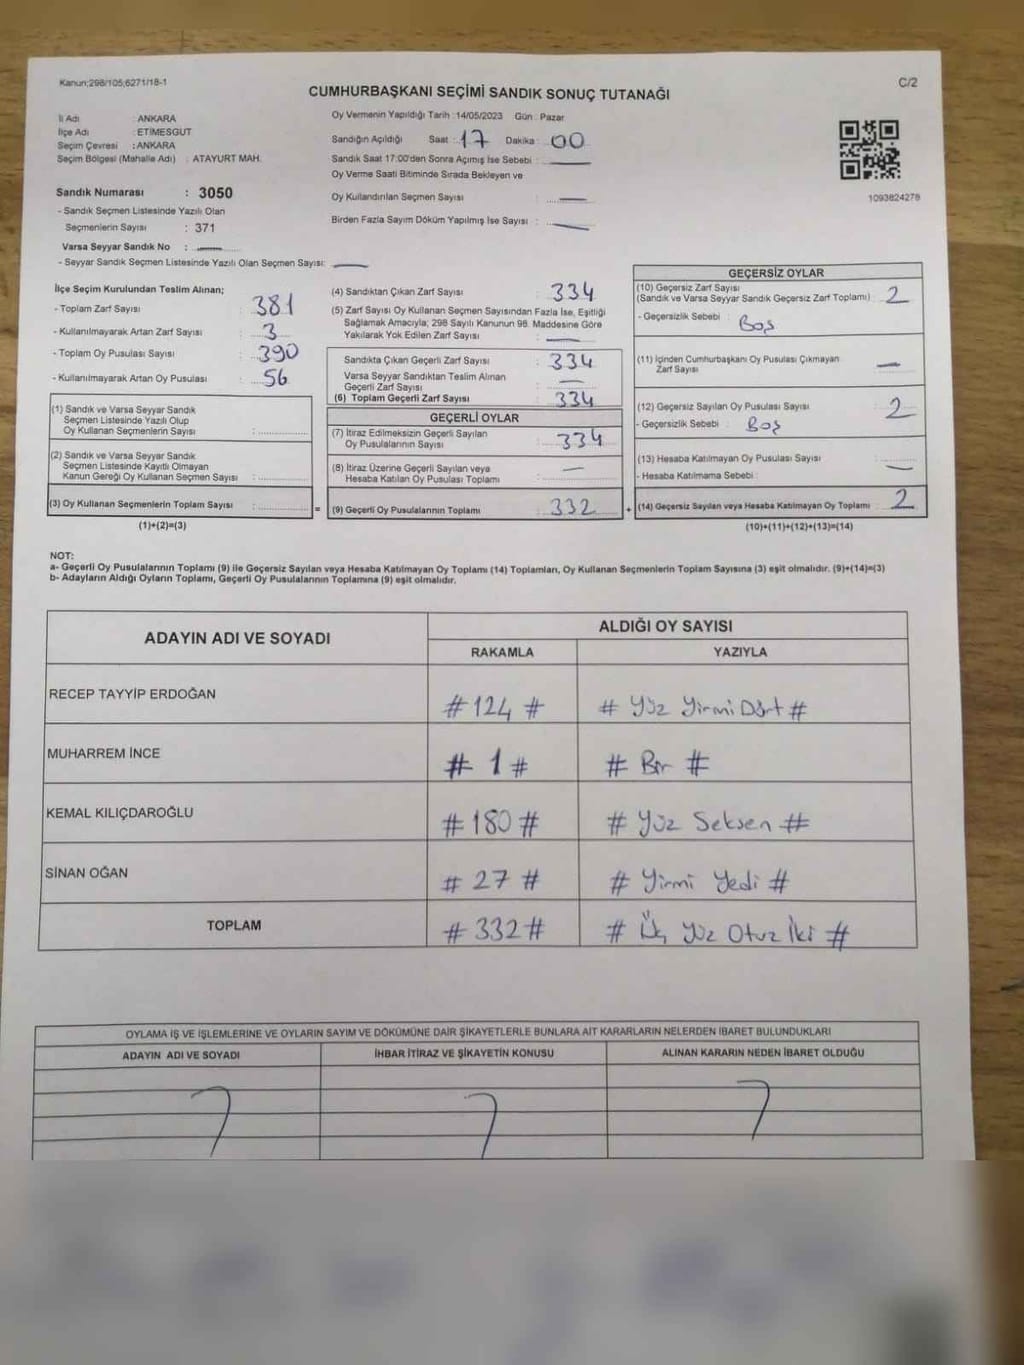 Kanun;298/105;6271/18-1
C/2
CUMHURBAŞKANI SEÇİMİ SANDIK SONUÇ TUTANAĞI
İl Adı : ANKARA
İlçe Adı : ETİMESGUT
Seçim Çevresi : ANKARA
Seçim Bölgesi (Mahalle Adı) : ATAYURT MAH.
Sandık Numarası : 3050
- Sandık Seçmen Listesinde Yazılı Olan
Seçmenlerin Sayısı : 371
Varsa Seyyar Sandık No : —
- Seyyar Sandık Seçmen Listesinde Yazılı Olan Seçmen Sayısı: —
Oy Vermenin Yapıldığı Tarih : 14/05/2023 Gün : Pazar
Sandığın Açıldığı Saat : 17 Dakika : 00
Sandık Saat 17:00'den Sonra Açımış İse Sebebi : —
Oy Verme Saati Bitiminde Sırada Bekleyen ve
Oy Kullandırılan Seçmen Sayısı : —
Birden Fazla Sayım Döküm Yapılmış İse Sayısı : —
1093824278
İlçe Seçim Kurulundan Teslim Alınan;
- Toplam Zarf Sayısı : 381
- Kullanılmayarak Artan Zarf Sayısı : 3
- Toplam Oy Pusulası Sayısı : 390
- Kullanılmayarak Artan Oy Pusulası : 56
(1) Sandık ve Varsa Seyyar Sandık
Seçmen Listesinde Yazılı Olup
Oy Kullanan Seçmenlerin Sayısı :
(2) Sandık ve Varsa Seyyar Sandık
Seçmen Listesinde Kayıtlı Olmayan
Kanun Gereği Oy Kullanan Seçmen Sayısı :
(3) Oy Kullanan Seçmenlerin Toplam Sayısı :
(1)+(2)=(3)
(4) Sandıktan Çıkan Zarf Sayısı : 334
(5) Zarf Sayısı Oy Kullanan Seçmen Sayısından Fazla İse, Eşitliği
Sağlamak Amacıyla; 298 Sayılı Kanunun 98. Maddesine Göre
Yakılarak Yok Edilen Zarf Sayısı : —
Sandıkta Çıkan Geçerli Zarf Sayısı : 334
Varsa Seyyar Sandıktan Teslim Alınan
Geçerli Zarf Sayısı : —
(6) Toplam Geçerli Zarf Sayısı : 334
GEÇERLİ OYLAR
(7) İtiraz Edilmeksizin Geçerli Sayılan
Oy Pusulalarının Sayısı : 334
(8) İtiraz Üzerine Geçerli Sayılan veya
Hesaba Katılan Oy Pusulası Toplamı : —
= (9) Geçerli Oy Pusulalarının Toplamı : 332
GEÇERSİZ OYLAR
(10) Geçersiz Zarf Sayısı
(Sandık ve Varsa Seyyar Sandık Geçersiz Zarf Toplamı) : 2
- Geçersizlik Sebebi : Boş
(11) İçinden Cumhurbaşkanı Oy Pusulası Çıkmayan
Zarf Sayısı : —
(12) Geçersiz Sayılan Oy Pusulası Sayısı : 2
- Geçersizlik Sebebi : Boş
(13) Hesaba Katılmayan Oy Pusulası Sayısı : —
- Hesaba Katılmama Sebebi :
+ (14) Geçersiz Sayılan veya Hesaba Katılmayan Oy Toplamı : 2
(10)+(11)+(12)+(13)=(14)
NOT:
a- Geçerli Oy Pusulalarının Toplamı (9) ile Geçersiz Sayılan veya Hesaba Katılmayan Oy Toplamı (14) Toplamları, Oy Kullanan Seçmenlerin Toplam Sayısına (3) eşit olmalıdır. (9)+(14)=(3)
b- Adayların Aldığı Oyların Toplamı, Geçerli Oy Pusulalarının Toplamına (9) eşit olmalıdır.
ADAYIN ADI VE SOYADI
ALDIĞI OY SAYISI
RAKAMLA YAZIYLA
RECEP TAYYİP ERDOĞAN # 124 # # Yüz Yirmi Dört #
MUHARREM İNCE # 1 # # Bir #
KEMAL KILIÇDAROĞLU # 180 # # Yüz Seksen #
SİNAN OĞAN # 27 # # Yirmi Yedi #
TOPLAM # 332 # # Üç Yüz Otuz İki #
OYLAMA İŞ VE İŞLEMLERİNE VE OYLARIN SAYIM VE DÖKÜMÜNE DAİR ŞİKAYETLERLE BUNLARA AİT KARARLARIN NELERDEN İBARET BULUNDUKLARI
ADAYIN ADI VE SOYADI İHBAR İTİRAZ VE ŞİKAYETİN KONUSU ALINAN KARARIN NEDEN İBARET OLDUĞU